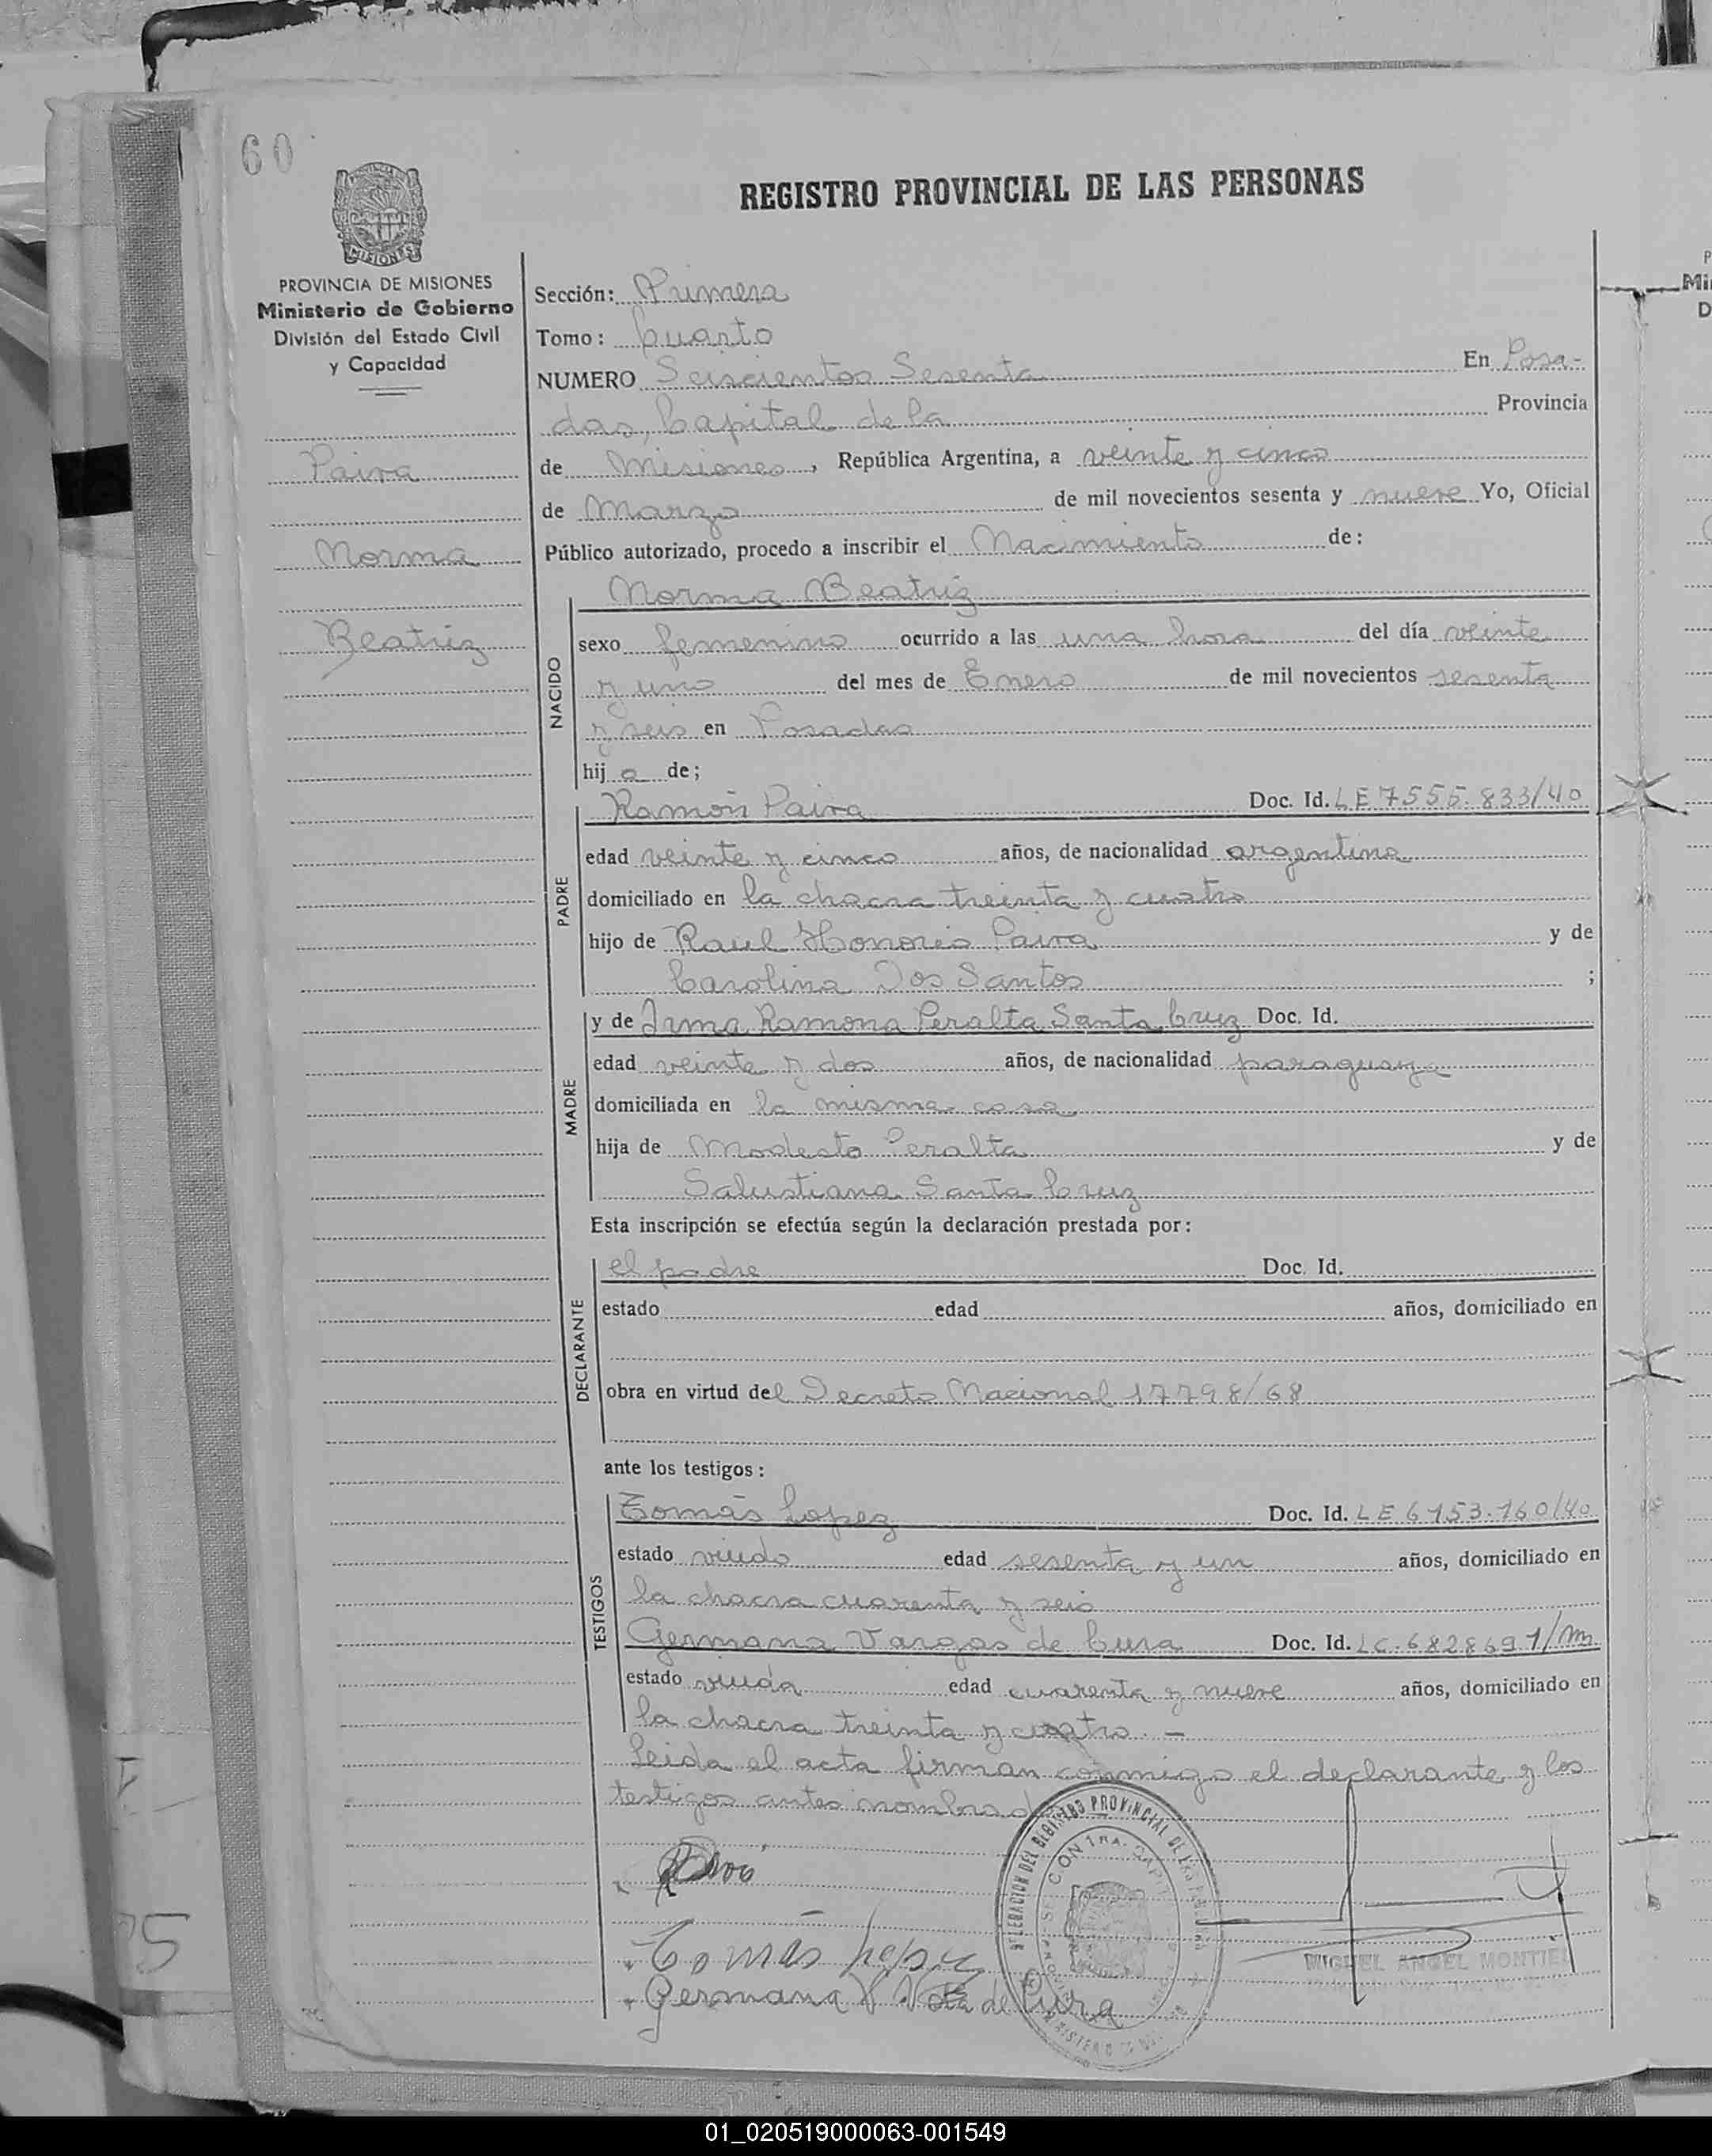 60
REGISTRO PROVINCIAL DE LAS PERSONAS
MISIONES
PROVINCIA DE MISIONES
Ministerio de Gobierno
División del Estado Civil
y Capacidad
Paiva
Norma
Beatriz
Sección: Primera
Tomo: Cuarto
NUMERO Seiscientos Sesenta En Posa-
das, Capital de la Provincia
de Misiones, República Argentina, a veinte y cinco
de Marzo de mil novecientos sesenta y nueve Yo, Oficial
Público autorizado, procedo a inscribir el Nacimiento de:
Norma Beatriz
NACIDO
sexo femenino ocurrido a las una hora del día veinte
y uno del mes de Enero de mil novecientos sesenta
y seis en Posadas
hija de;
PADRE
Ramón Paiva Doc. Id. LE 7555.833/40
edad veinte y cinco años, de nacionalidad argentina
domiciliado en la chacra treinta y cuatro
hijo de Raul Honorio Paiva y de
Carolina Dos Santos ;
MADRE
y de Irma Ramona Peralta Santa Cruz Doc. Id.
edad veinte y dos años, de nacionalidad paraguaya
domiciliada en la misma casa
hija de Modesto Peralta y de
Salustiana Santa Cruz
Esta inscripción se efectúa según la declaración prestada por:
DECLARANTE
el padre Doc. Id.
estado edad años, domiciliado en
obra en virtud del Decreto Nacional 17798/68
ante los testigos:
TESTIGOS
Tomás Lopez Doc. Id. LE 6153.160/40
estado viudo edad sesenta y un años, domiciliado en
la chacra cuarenta y seis
Germana Vargas de Cura Doc. Id. LC.6828691/m
estado viuda edad cuarenta y nueve años, domiciliado en
la chacra treinta y cuatro. –
Leida el acta firman conmigo el declarante y los
testigos antes nombrad
Tomás Lopez
Germana V. de Cura
DELEGACION DEL REGISTRO PROVINCIAL DE LAS PERSONAS
MIGUEL ANGEL MONTIEL
01_020519000063-001549